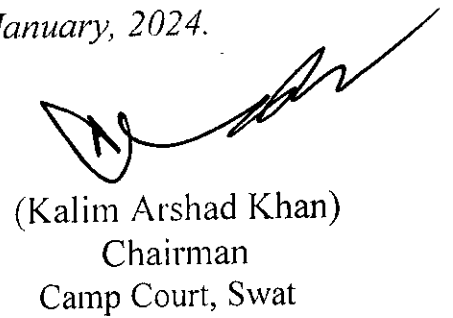 January, 2024.
(Kalim Arshad Khan)
Chairman
Camp Court, Swat